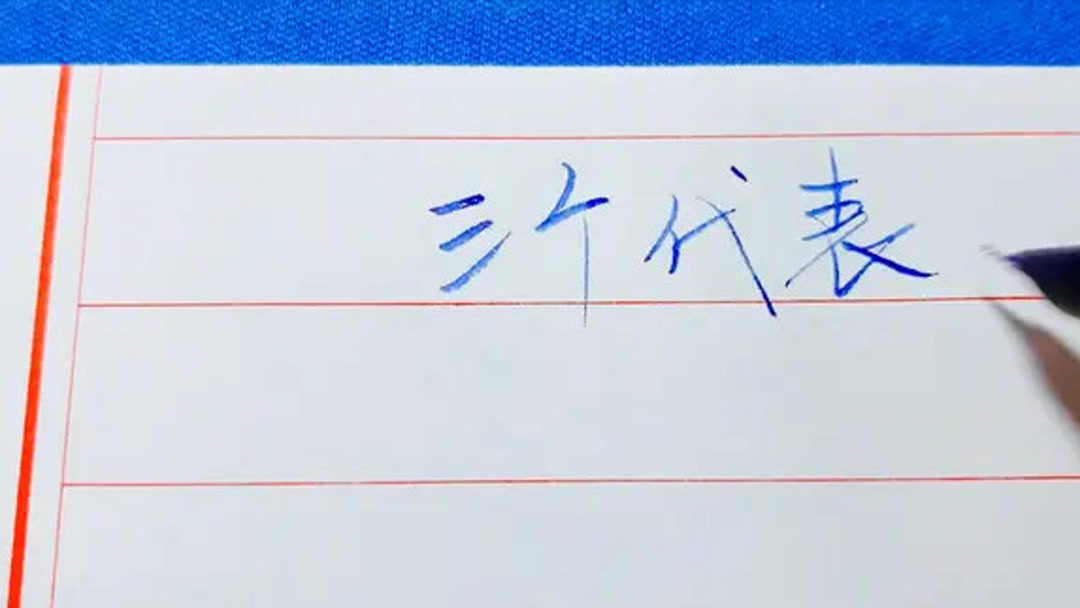 三个代表